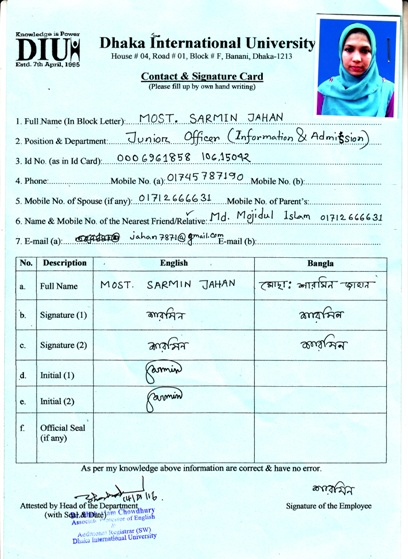 Knowledge is Power
DIU
Estd. 7th April, 1995
Dhaka International University
House # 04, Road # 01, Block # F, Banani, Dhaka-1213
Contact & Signature Card
(Please fill up by own hand writing)
1. Full Name (In Block Letter): MOST. SARMIN JAHAN
2. Position & Department: Junior Officer (Information & Admission)
3. Id No. (as in Id Card): 0006961858 106,15042
4. Phone: Mobile No. (a): 01745787190 Mobile No. (b):
5. Mobile No. of Spouse (if any): 01712666631 Mobile No. of Parent's:
6. Name & Mobile No. of the Nearest Friend/Relative: Md. Mojidul Islam 01712666631
7. E-mail (a): jahan7871@gmail.com E-mail (b):
No. Description English Bangla
a. Full Name MOST. SARMIN JAHAN মোছা: শারমিন জাহান
b. Signature (1) শারমিন শারমিন
c. Signature (2) শারমিন শারমিন
d. Initial (1) Sarmin
e. Initial (2) Sarmin
f. Official Seal
(if any)
As per my knowledge above information are correct & have no error.
শারমিন
Attested by Head of the Department
(with Seal & Date)
Signature of the Employee
Chowdhury
of English
&
Additional Registrar (SW)
Dhaka International University